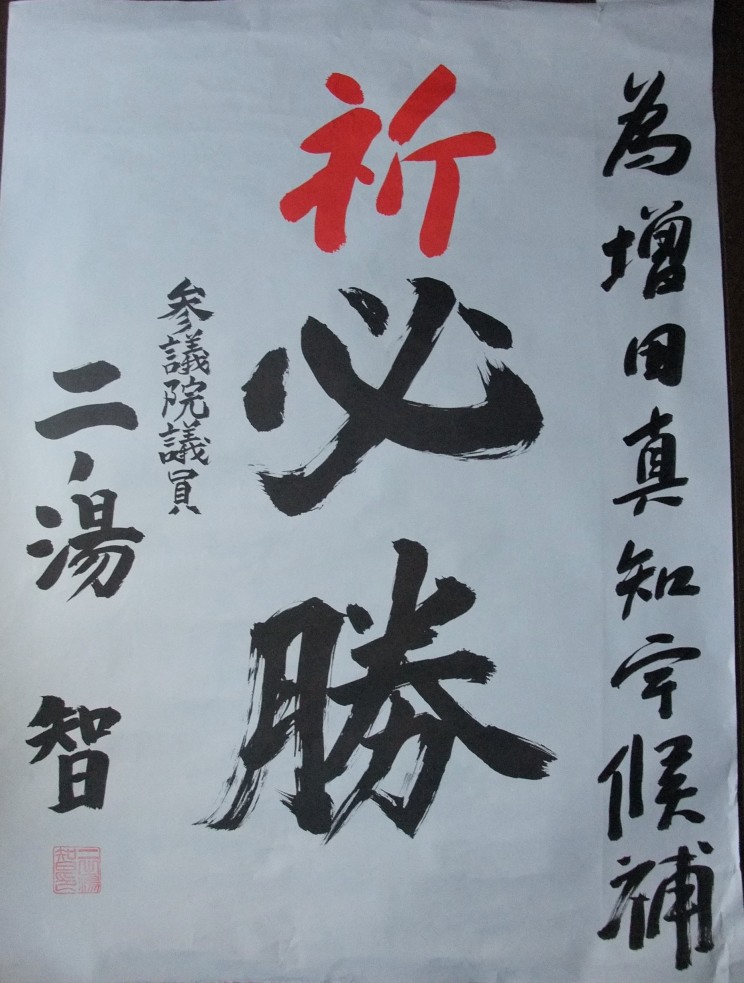 為増田真知宇候補
祈
必勝
参議院議員
二ノ湯 智